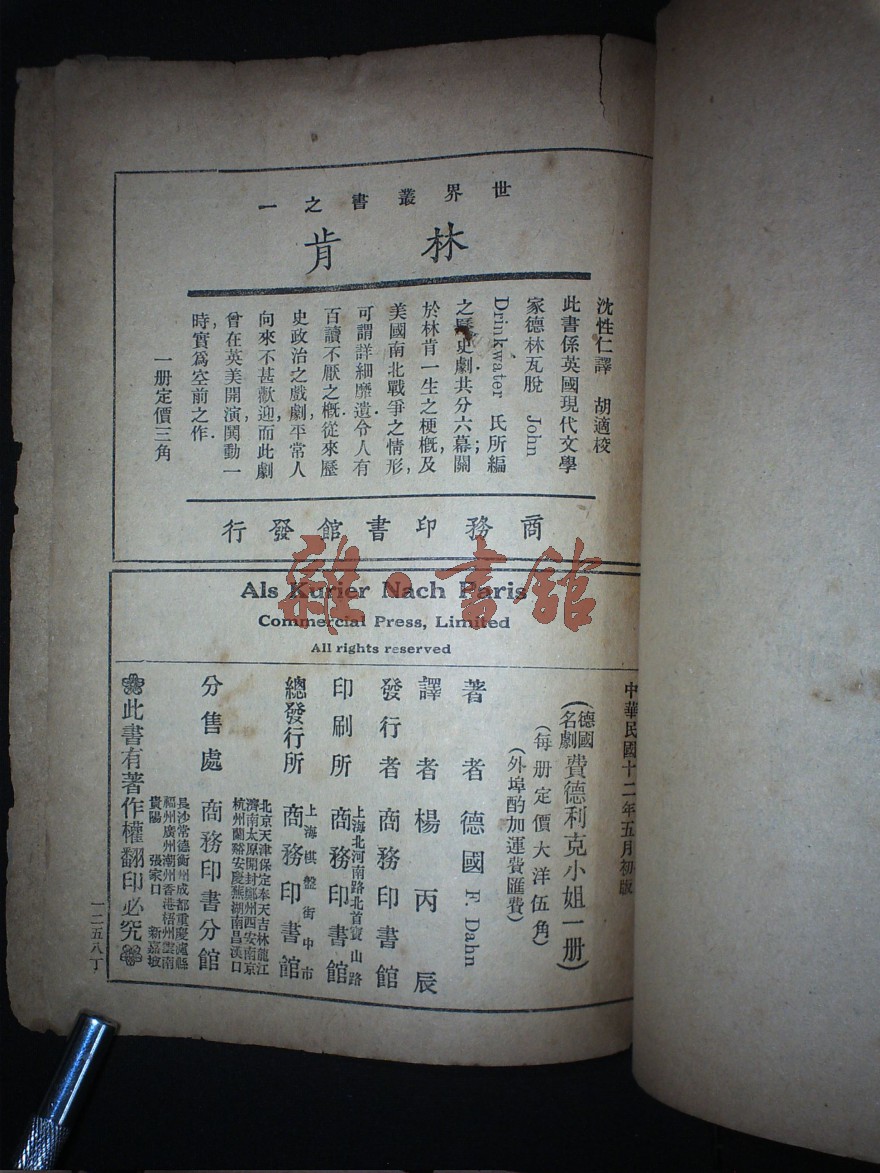 世界叢書之一
林肯
沈性仁譯　胡適校
此書係英國現代文學
家德林瓦脫　John
Drinkwater　氏所編
之歷史劇共分六幕關
於林肯一生之梗概，及
美國南北戰爭之情形，
可謂詳細靡遺．令人有
百讀不厭之概．從來歷
史政治之戲劇，平常人
向來不甚歡迎，而此劇
曾在英美開演，鬨動一
時，實爲空前之作．
一册定價三角
商務印書館發行
Als Kurier Nach Paris
Commercial Press, Limited
All rights reserved
中華民國十二年五月初版
（德國名劇費德利克小姐一册）
（每册定價大洋伍角）
（外埠酌加運費匯費）
著者　德國 F. Dahn
譯者　楊丙辰
發行者　商務印書館
上海北河南路北首寶山路
印刷所　商務印書館
上海棋盤街中市
總發行所　商務印書館
北京天津保定奉天吉林龍江
濟南太原開封鄭州西安南京
杭州蘭谿安慶蕪湖南昌漢口
分售處　商務印書分館
長沙常德衡州成都重慶瀘縣
福州廣州潮州香港梧州雲南
貴陽　張家口　新嘉坡
此書有著作權翻印必究
一二五八丁
雜·書館